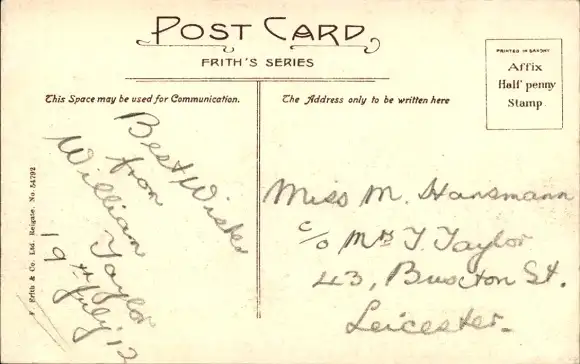 POST CARD
FRITH'S SERIES
PRINTED IN SAXONY
Affix
Half penny
Stamp
This Space may be used for Communication.
The Address only to be written here
Best Wishes
from
William
Taylor
19th July 12
Miss M. Hansmann
c/o Mrs T. Taylor
43, Buxton St.
Leicester.
F. Frith & Co. Ltd. Reigate. No. 54793